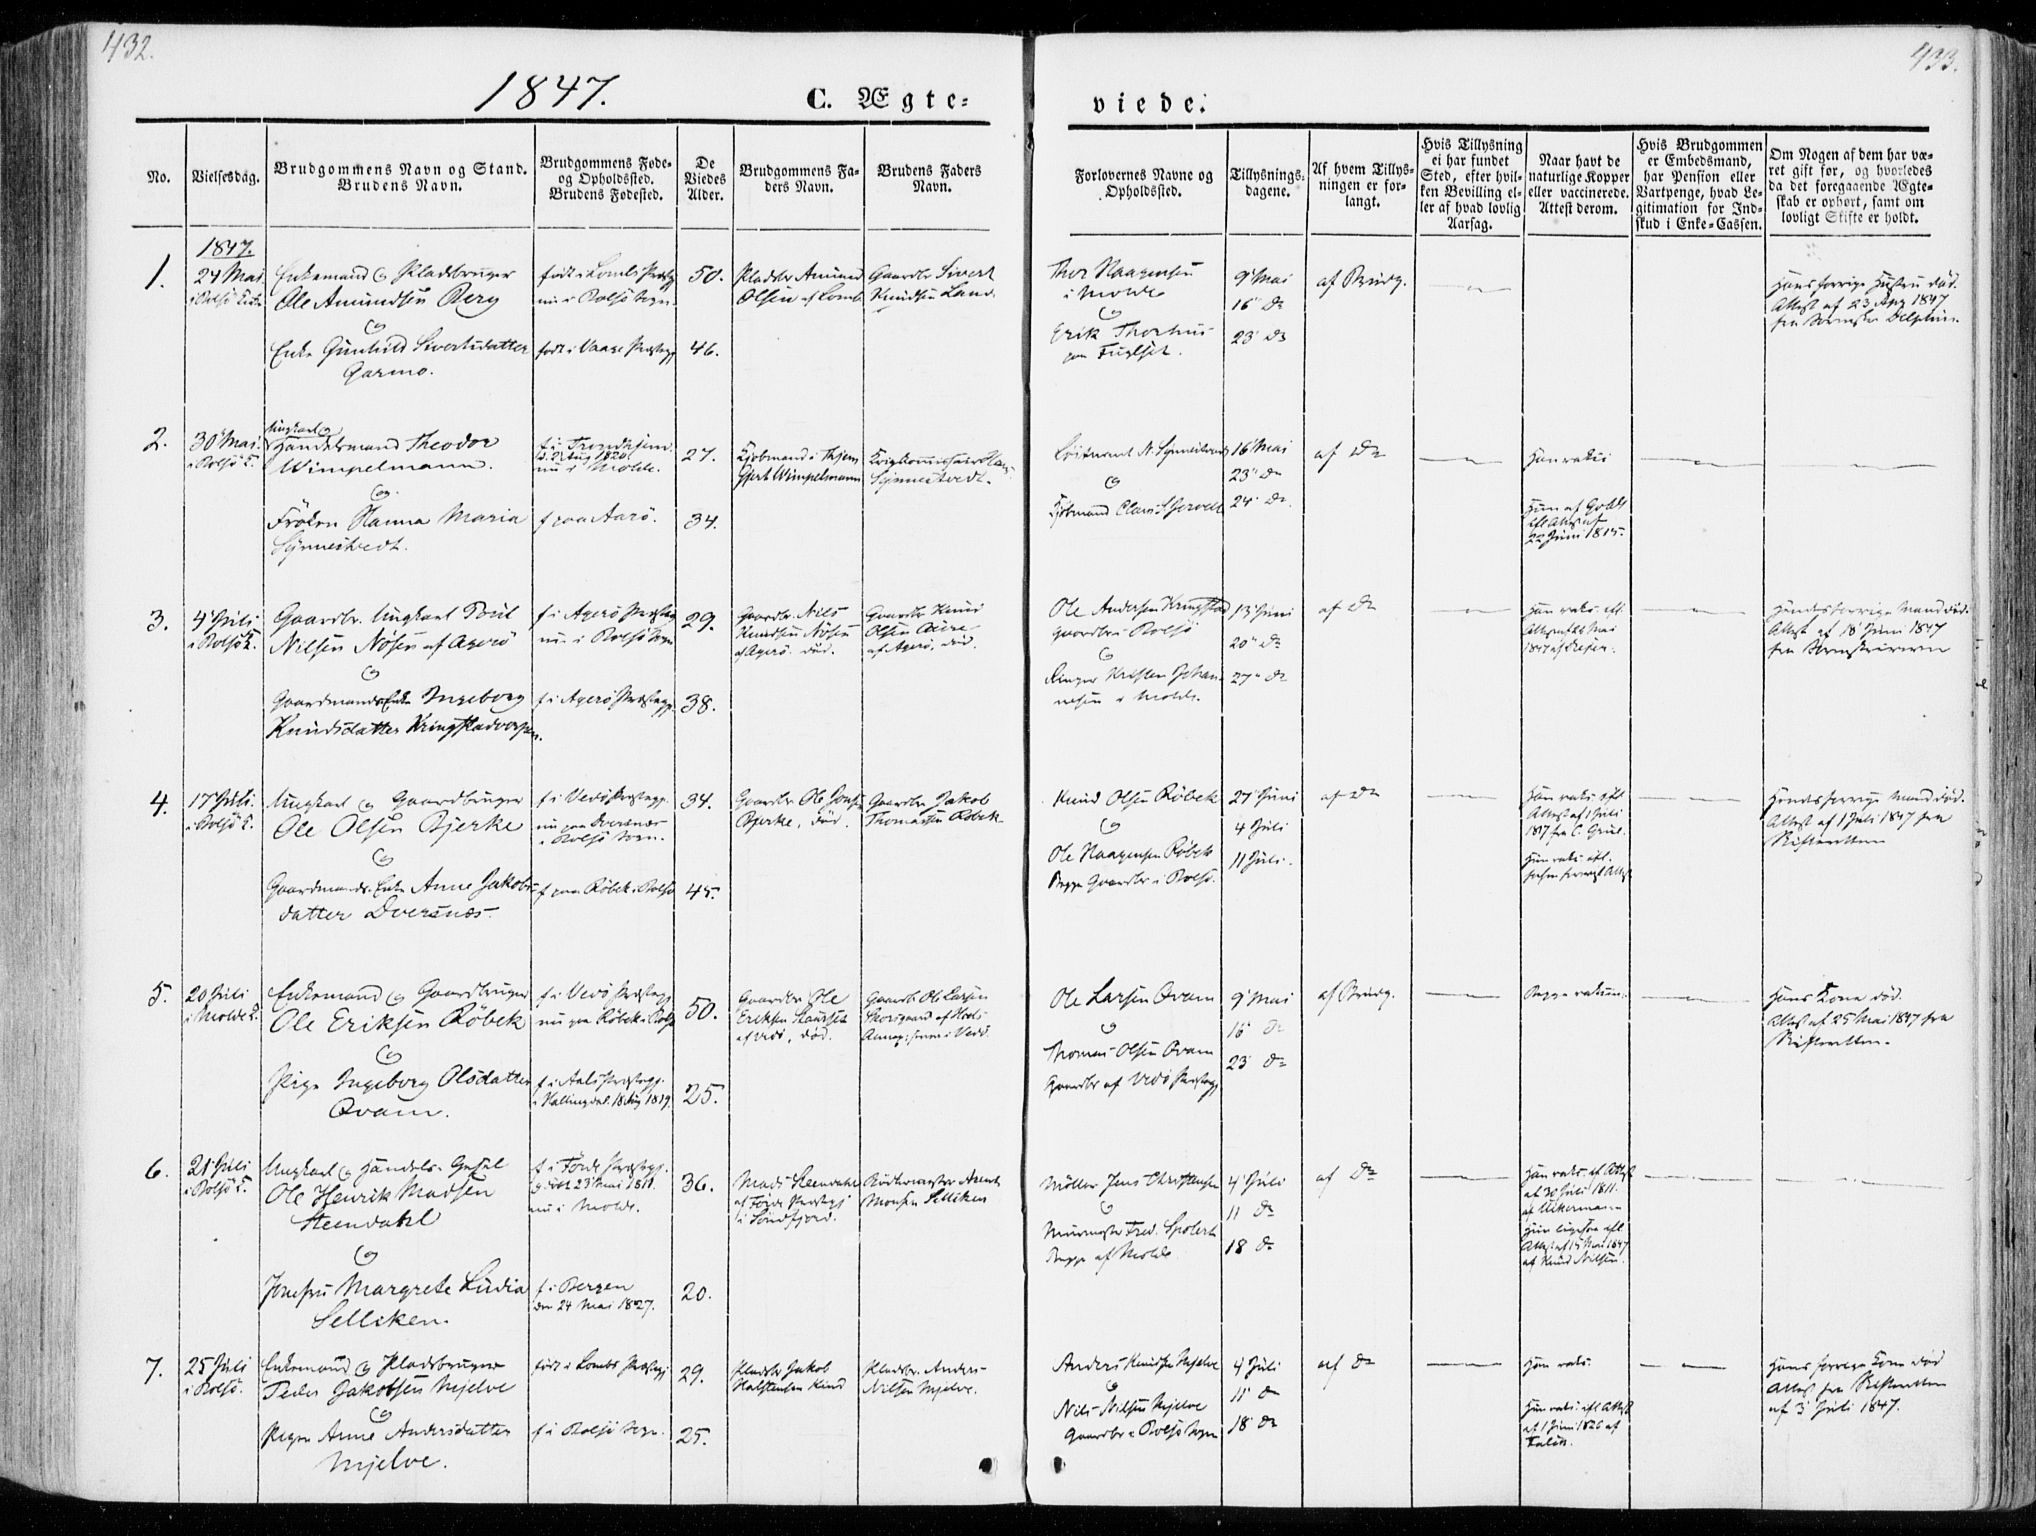 432.
433.
1847.
C. Ægte=
viede.
No.
Vielsesdag.
Brudgommens Navn og Stand.
Brudens Navn.
Brudgommens Føde=
og Opholdssted.
Brudens Fødested.
De
Viedes
Alder.
Brudgommens Fa=
ders Navn.
Brudens Faders
Navn.
Forlovernes Navne og
Opholdssted.
Tillysnings=
dagene.
Af hvem Tillys=
ningen er for=
langt.
Hvis Tillysning
ei har fundet
Sted, efter hvil=
ken Bevilling el=
ler af hvad lovlig
Aarsag.
Naar havt de
naturlige Kopper
eller vaccinerede.
Attest derom.
Hvis Brudgommen
er Embedsmand,
har Pension eller
Vartpenge, hvad Le=
gitimation for Ind=
skud i Enke=Cassen.
Om Nogen af dem har væ=
ret gift før, og hvorledes
da det foregaaende Ægte=
skab er ophørt, samt om
lovligt Skifte er holdt.
1.
1847.
24 Mai
i Bolsö
Enkemand og Pladsbruger
Ole Amundsen Berg
og
Enke Gunhild Sivertsdatter
Garmo.
født i Lombs Præstg
nu i Bolsö Sogn
født i Vaage Præstegj
50.
46.
Pladsbr Amund
Olsen af Lomb
Gaardbr Sivert
Knudsen
Thor Haagensen
i Molde
og
Erik Thorhus
paa Fuglset.
9 Mai
16 do
23 do
af Brudg.
Hans forrige Hustru død.
Attest af 23 Apr 1847
fra
2.
30 Mai
i Bolsö K.
Ungkarl og
Handelsmand Theodor
Wimpelmann.
og
Frøken Hanna Maria
Synnestvedt.
f i Trondhjem
nu i Molde.
f paa Aarö.
27.
34.
Kjøbmand i Thjem
Gjert Wimpelmann
Synnestvedt.
Löitnant N. Synnestvedt
og
Kjøbmand Claus
16 Mai
23 do
24 do
af do
Han vaks
Hun af
Attest af
22 Juni 1815
3.
4 Juli
i Bolsö K.
Gaardbr. Ungkarl Poul
Nilsen Nösen af Agerö
og
Gaardmands Enke Ingeborg
Knudsdatter Kringstadvorpen.
f i Agerö Præsteg
nu i Bolsö Sogn
f i Agerö Præstegj.
29.
38.
Gaardbr. Nils
Knudsen Nösen
af Agerö. död.
Gaardbr Knud
Olsen
af Agerö, död.
Ole Andersen Kringstad
Gaardbr i Bolsö
og
Kristen Johan
nesen i Molde.
13 Juni
20 do
27 do
af do
Han vaks. efl.
Attest
1847
Hendes forrige Mand död.
Attest af 18 Juni 1847
fra
4.
17 Juli
i Bolsö K.
Ungkarl og Gaardbruger
Ole Olsen Bjerke
og
Gaardmands Enke Anne Jakobs
datter Dversnæs.
f i Vedö Præstegj.
nu paa Dversnæs
i Bolsö Sogn.
f paa Röbek i Bolsö
34.
45.
Gaardbr Ole
Bjerke, död.
Gaardbr Jakob
Thomassen Röbek
Knud Olsen Röbek
og
Ole Haagensen Röbek
Begge Gaardbr i Bolsö.
27 Juni
4 Juli
11 Juli.
af do
Han vaks. efl.
Attest af 1 Juli
Hun vaks. efl.
Attest
Hendes forrige Mand död.
Attest af 1 Juli 1847 fra
Skifteretten
5.
20 Juli
i Molde K.
Enkemand og Gaardbruger
Ole Eriksen Röbek
og
Pige Ingeborg Olsdatter
Qvam.
f i Vedö Præstegj
nu paa Röbek i Bolsö
f i Aals Præstegj.
i Hallingdal. 18 Aug 1819.
50.
25.
Gaardbr Ole
Eriksen
af Vedö, död.
Gaardb. Ole Larsen
Skorgaard af
i Vedö
Ole Larsen Qvam
og
Thomas Olsen Qvam
Gaardbr af Vedö Præstegj
9 Mai
16 do
23 do
af Brudg.
Begge vaksin.
Hans Kone död.
Attest af 25 Mai 1847 fra
Skifteretten.
6.
21 Juli
i Bolsö K.
Ungkarl og Handels-Gesel
Ole Henrik Madsen
Steendahl
og
Jomfru Margrete Ludia
Selliken.
f i Förde Præstegj.
23 Mai 1811.
nu i Molde.
f i Bergen
den 24 Mai 1827.
36.
20.
Mads Steendahl
af Förde Præstegj
i Söndfjord.
Arent
Monsen Selliken
Möller Jens Christensen
og
Muurmester Fred. Spolert
Begge af Molde
4 Juli
11 do
18 do
af do
Han vaks. efl. Attest
af 30 Juli 1811.
af Ukermann
Hun ligesaa efl.
Attest af 15 Mai 1847
af Knud Nilsen.
7.
25 Juli
i Bolsö.
Enkemand og Pladsbruger
Peder Jakobsen Mjelve
og
Pigen Anne Andersdatter
Mjelve.
født i Lombs Præstegj
f i Bolsö Sogn.
29.
25.
Pladsbr Jakob
Halstensen
Pladsbr. Anders
Nilsen Mjelve.
Anders Knudsen Mjelve
og
Nils Nilsen Mjelve
Gaardbr i Bolsö Sogn
4 Juli
11 do
18 do
af do
Han vaks.
Hun vaks. efl. Attest
af 1 Juni 1826 af
Hans forrige Kone död
Attest fra Skifteretten
af 3 Juli 1847.